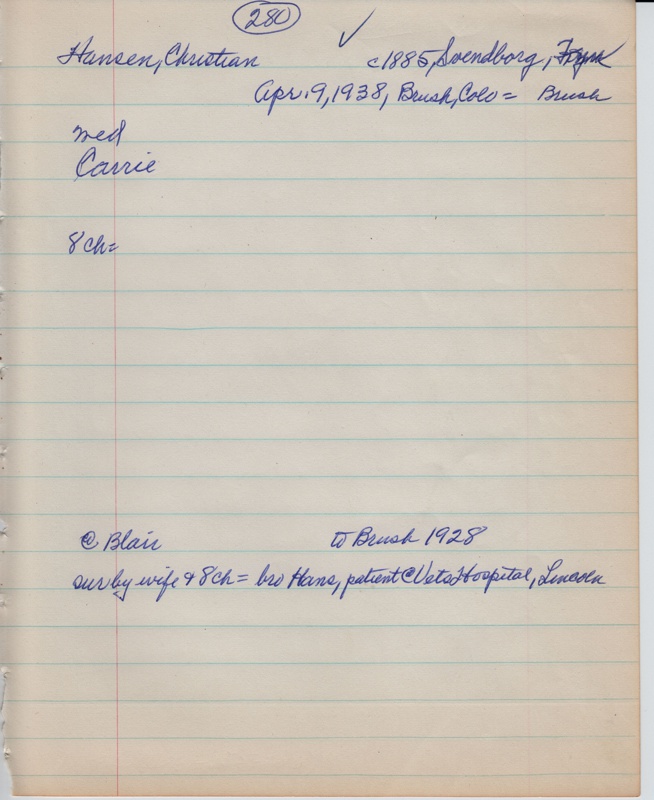 280 ✓
Hansen, Christian c1885, Svendborg,
Apr. 9, 1938, Brush, Colo = Brush
med
Carrie
8 ch=
@ Blair to Brush 1928
sur by wife & 8 ch = bro Hans, patient @ Vets Hospital, Lincoln